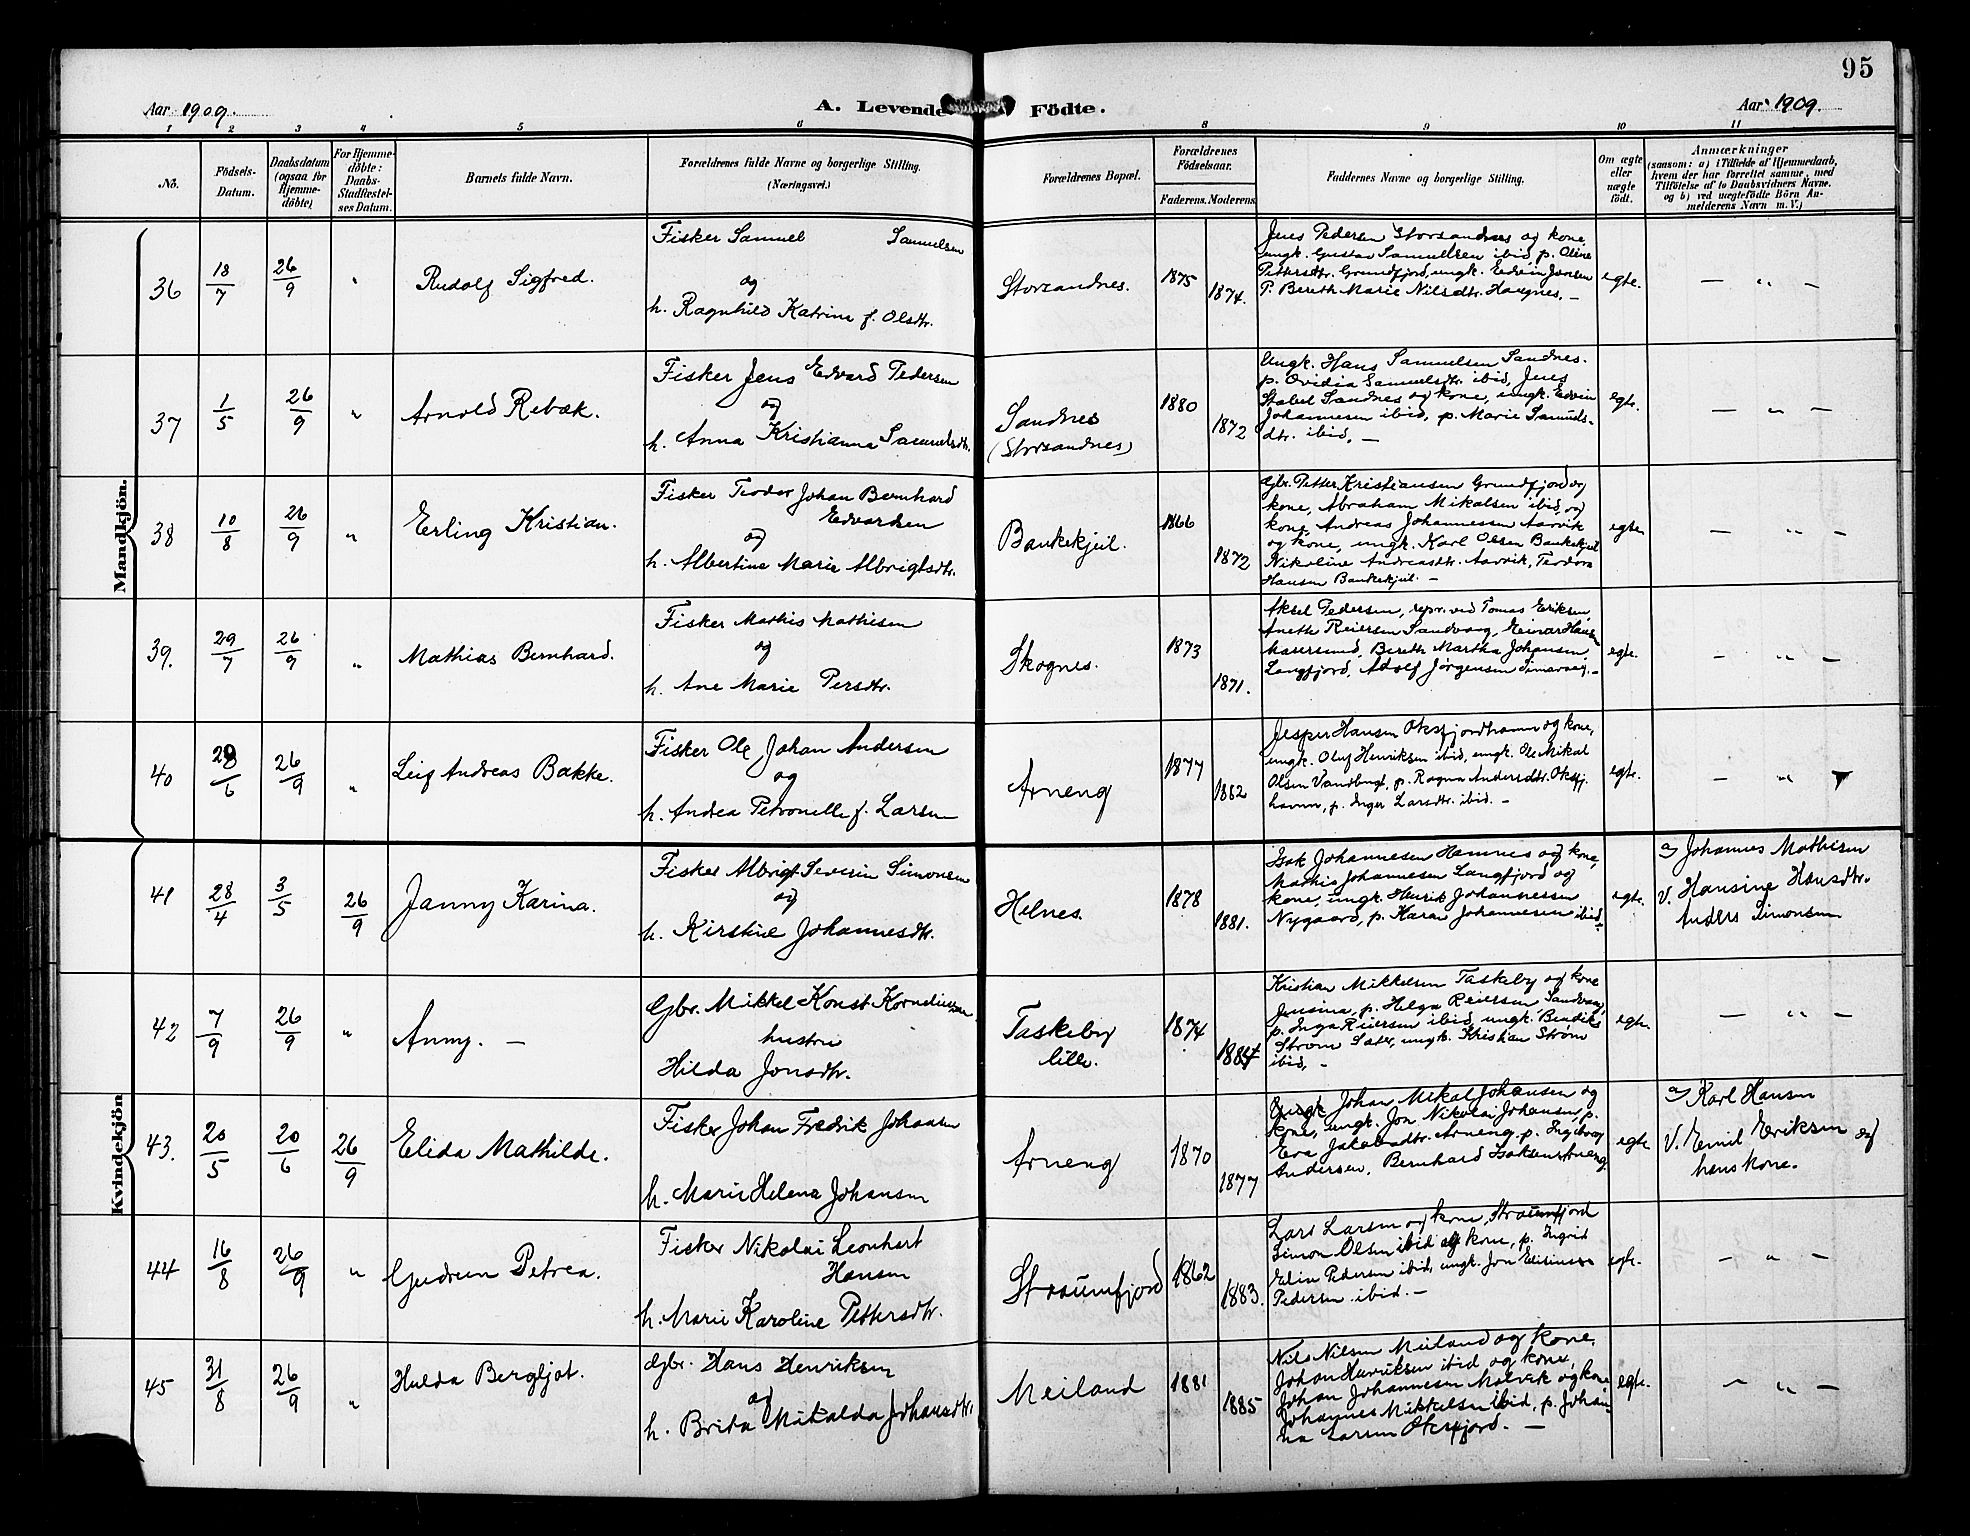 95
Aar 1909. A. Levende Födte. Aar 1909.
1 2 3 4 5 6 8 9 10 11
No.
Födsels-
Datum.
Daabsdatum
(ogsaa for
Hjemme-
döbte)
For Hjemme-
döbte:
Daabs-
Stadfæstel-
ses Datum.
Barnets fulde Navn.
Forældrenes fulde Navne og borgerlige Stilling.
(Næringsvei.)
Forældrenes Bopæl.
Forældrenes
Födselsaar.
Faderens. Moderens.
Faddernes Navne og borgerlige Stilling.
Om ægte
eller
uægte
födt.
Anmærkninger
(saasom: a) i Tilfælde af Hjemmedaab,
hvem der har forrettet samme, med
Tilföielse af to Daabsvidners Navne.
og b) ved uægtefödte Börn An-
melderens Navn m. V.)
Mandkjön.
36
18/7
26/9
"
Rudolf Sigfred.
Fisker Samuel Samuelsen
og
h. Ragnhild Katrine f. Olsdtr.
Storsandnes.
1875
1874.
Jens Pedersen Storsandnes og kone,
ungk. Gustav Samuelsen ibid, p. Oline
Pettersdtr. Grundfjord, ungk. Edvin Jensen
p. Bereth Marie Nilsdtr. Haugnes. —
egte.
— " —
37
1/5
26/9
"
Arnold Rebæk.
Fisker Jens Edvard Pedersen
og
h. Anna Kristianna Samuelsdtr.
Sandnes
(Storsandnes)
1880
1872
Ungk. Hans Samuelsen Sandnes.
p. Ovidia Samuelsdtr. ibid, Jens
Stabel Sandnes og kone, ungk. Edvin
Johannesen ibid, p. Marie Samuels-
dtr. ibid, —
egte.
— " —
38
10/8
26/9
"
Erling Kristian.
Fisker Teodor Johan Bernhard
Edvardsen
og
h. Albertine Marie Albrigtsdtr.
Bankekjeil.
1866
1872
Gbr. Petter Kristiansen Grundfjord og
kone, Abraham Mikalsen ibid, og
kone, Andreas Johannessen Aarvik
og kone, ungk. Karl Olsen Bankekjeil
Nikoline Andreasdtr. Aarvik, Teodora
Hansen Bankekjeil. —
egte
— " —
39.
29/7
26/9
"
Mathias Bernhard.
Fisker Mathis Mathisen
og
h. Ane Marie Persdtr.
Skognes.
1873
1871.
Aksel Pedersen, repr. ved Tomas Eriksen,
Anethe Reiersen Sandvaag, Einar Hansen
Maursund, Bereth Martha Johansen
Langfjord, Adolf Jørgensen —
egte.
— " —
40
28/6
26/9
"
Leif Andreas Bakke.
Fisker Ole Johan Andersen
og
h. Andrea Petronelle f. Larsen
Arneng
1877
1882
Jesper Hansen Oksfjordhamn og kone,
ungk. Oluf Henriksen ibid, ungk. Ole Mikal
Olsen Vandbugt, p. Ragna Andersdtr. Oksfj.
havnn, p. Inger Larsdtr. ibid. —
egte.
— "
Kvindekjön
41
28/4
3/5
26/9
Janny Karina.
Fisker Albrigt Severin Simonsen
og
h. Kirstine Johannesdtr.
Helnes.
1878
1881.
Isak Johannesen Hamnes og kone,
Mathis Johannesen Langfjord og
kone, ungk. Henrik Johannessen
Nygaard, p. Karen Johannesen ibid. —
egte.
a) Johannes Mathisen
V. Hansine Hansdtr.
Anders Simonsen
42
7/9
26/9
"
Anny. —
Gbr. Mikkel Konst. Korneliussen
hustru
Hilda Jonsdtr.
Taskeby
lille.
1874
1884
Kristian Mikkelsen Taskeby og kone
Jensina, p. Helga Reiersen, Sandvaag,
p. Inga Reiersen ibid, ungk. Bendiks
Strøm Sæter, ungk. Kristian Strøm
ibid, —
egte.
— " —
43.
20/5
20/6
26/9
Elida Mathilde.
Fisker Johan Fredrik Johansen
h. Marie Helena Johansen
Arneng
1870
1877
Johan Mikal Johansen og
kone, ungk. Jon Nikolai Johansen, p.
Eva Jakobsdtr. Arneng, p. Ingeborg
Andersen, Bernhard Isaksen, Arneng.
egte
a) Karl Hansen
V. Emil Eriksen og
hans kone.
44
16/8
26/9
"
Gudrun Petrea.
Fisker Nikolai Leonhart
Hansen
h. Marie Karoline Pettersdtr.
Straumfjord
1862
1883.
Lars Larsen og kone, Straumfjord
Simon Olsen ibid og kone, p. Ingrid
Elin Pedersen ibid, ungk. Jon
Pedersen ibid. —
egte.
— " —
45
31/8
26/9
"
Hulda Bergljot.
Gbr. Hans Henriksen
og
h. Brita Mikalda Johansdtr.
Meiland
1881
1885
Nils Nilsen Meiland og kone,
Johan Henriksen ibid og kone,
Johan Johannesen Molvik og kone
Johannes Mikkelsen ibid, p. Johan-
na Larsen Oksfjord. —
egte.
— " —